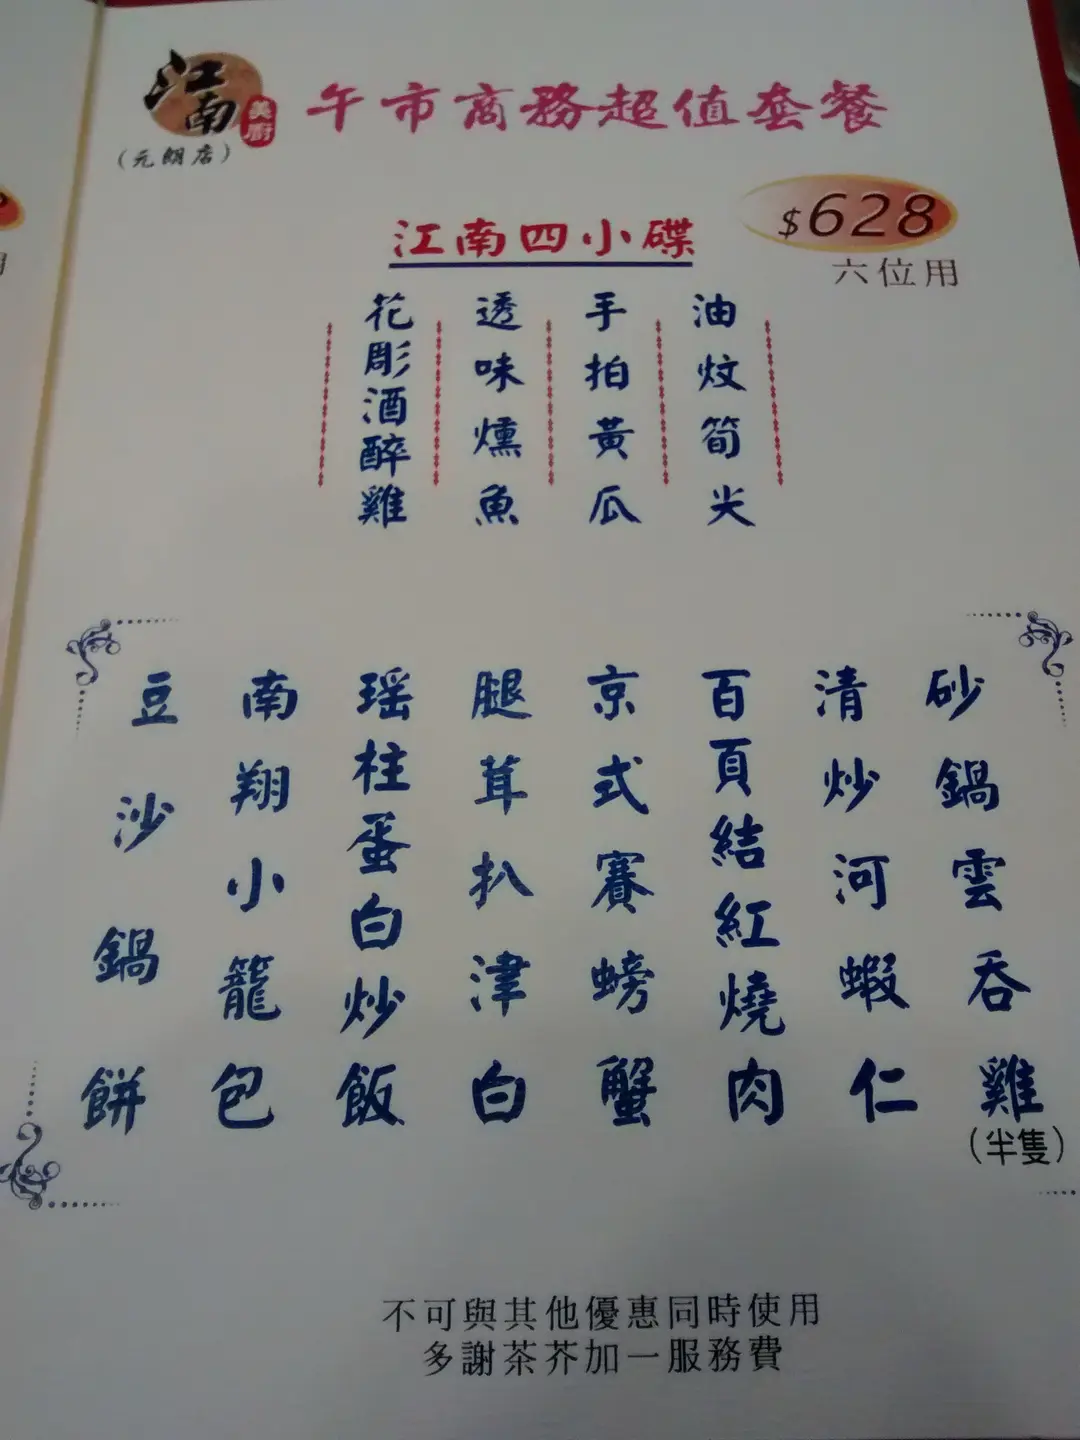 江南
美廚
(元朗店)
午市商務超值套餐
$628
六位用
江南四小碟
油炆筍尖
手拍黃瓜
透味燻魚
花彫酒醉雞
砂鍋雲吞雞
(半隻)
清炒河蝦仁
百頁結紅燒肉
京式賽螃蟹
腿茸扒津白
瑶柱蛋白炒飯
南翔小籠包
豆沙鍋餅
不可與其他優惠同時使用
多謝茶芥加一服務費